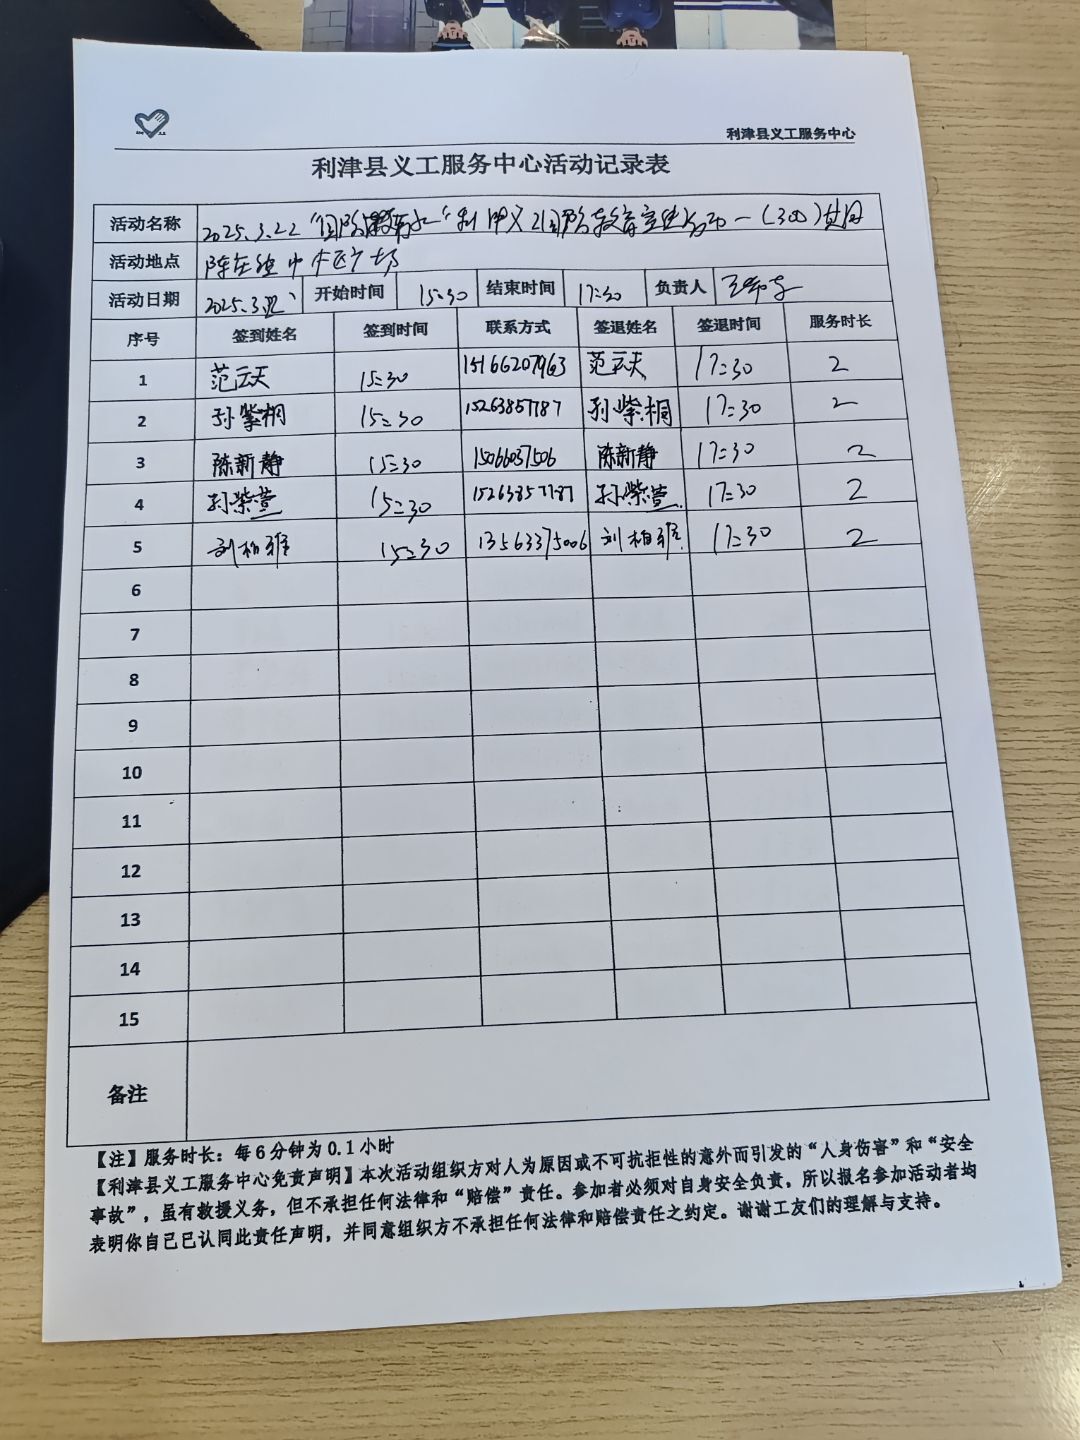 利津县义工服务中心
利津县义工服务中心活动记录表
活动名称 2025.3.22
活动地点
活动日期 2025.3.22 开始时间 15:30 结束时间 17:30 负责人
序号 签到姓名 签到时间 联系方式 签退姓名 签退时间 服务时长
1 范云天 15:30 15166207963 范云天 17:30 2
2 孙紫桐 15:30 15263857787 孙紫桐 17:30 2
3 陈新静 15:30 15066037506 陈新静 17:30 2
4 孙紫萱 15:30 15263857787 孙紫萱 17:30 2
5 刘柏雅 15:30 13563375006 刘柏雅 17:30 2
6
7
8
9
10
11
12
13
14
15
备注
【注】服务时长：每6分钟为0.1小时
【利津县义工服务中心免责声明】本次活动组织方对人为原因或不可抗拒性的意外而引发的“人身伤害”和“安全
事故”，虽有救援义务，但不承担任何法律和“赔偿”责任。参加者必须对自身安全负责，所以报名参加活动者均
表明你自己已认同此责任声明，并同意组织方不承担任何法律和赔偿责任之约定。谢谢工友们的理解与支持。